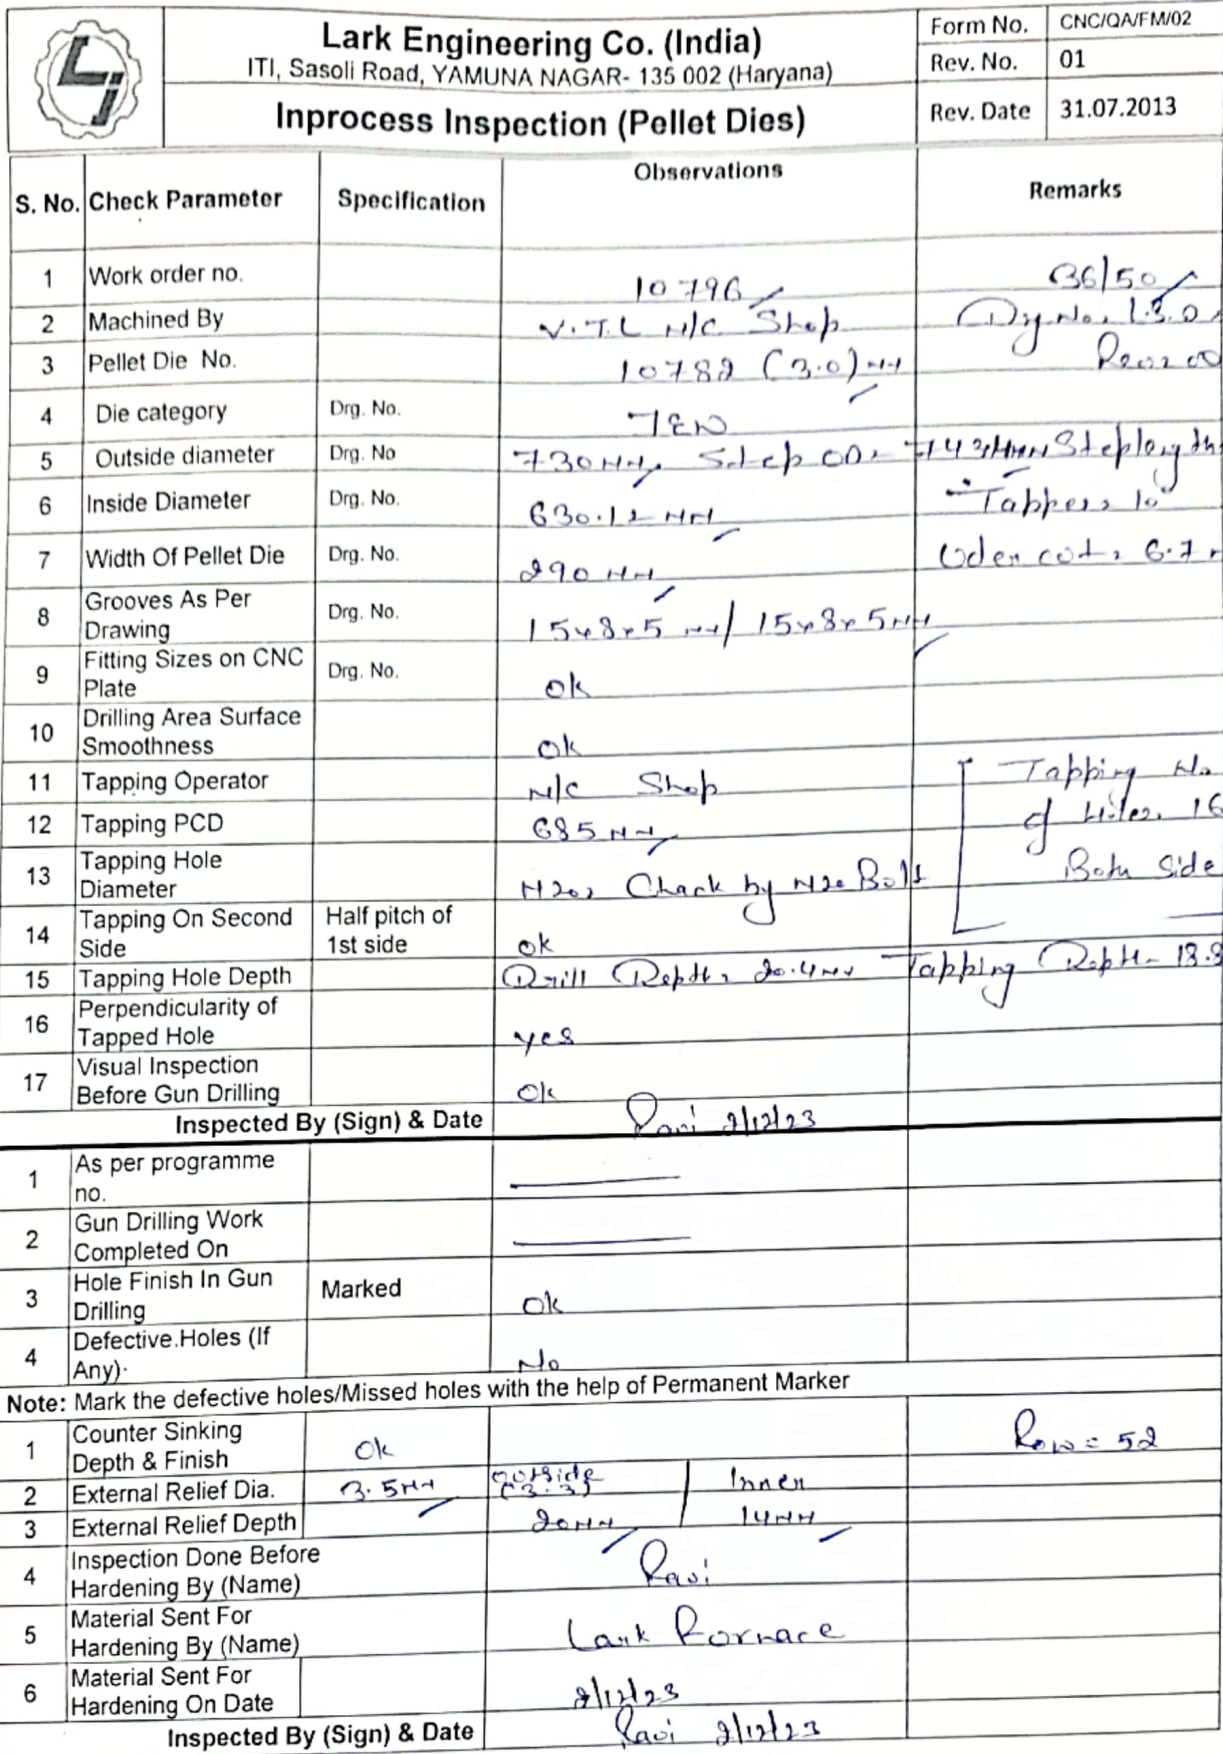 Lark Engineering Co. (India)
ITI, Sasoli Road, YAMUNA NAGAR- 135 002 (Haryana)
Inprocess Inspection (Pellet Dies)
Form No. CNC/QA/FM/02
Rev. No. 01
Rev. Date 31.07.2013
S. No. Check Parameter Specification Observations Remarks
1 Work order no. 10796 36/50
2 Machined By V.T.L M/C Shop
3 Pellet Die No. 10782 (3.0) MM
4 Die category Drg. No.
5 Outside diameter Drg. No 730 MM, Step OD, Step
6 Inside Diameter Drg. No. 630.12 MM Tapper, 10°
7 Width Of Pellet Die Drg. No. 290 MM Uder cut, 6.7
8 Grooves As Per
Drawing Drg. No. 15x8x5 MM/ 15x8x5 MM
9 Fitting Sizes on CNC
Plate Drg. No. Ok
10 Drilling Area Surface
Smoothness Ok
11 Tapping Operator M/C Shop Tapping No.
12 Tapping PCD 685 MM of Holes, 16
13 Tapping Hole
Diameter M20, Chack by M20 Bolt Both Side
14 Tapping On Second
Side Half pitch of
1st side ok
15 Tapping Hole Depth Drill Depth, 20.4 MM Tapping Depth-
16 Perpendicularity of
Tapped Hole yes
17 Visual Inspection
Before Gun Drilling Ok
Inspected By (Sign) & Date Ravi 2/12/23
1 As per programme
no.
2 Gun Drilling Work
Completed On
3 Hole Finish In Gun
Drilling Marked Ok
4 Defective.Holes (If
Any) No
Note: Mark the defective holes/Missed holes with the help of Permanent Marker
1 Counter Sinking
Depth & Finish Ok Row = 52
2 External Relief Dia. 3.5 MM outside (3.3) Inner
3 External Relief Depth 20 MM 14 MM
4 Inspection Done Before
Hardening By (Name) Ravi
5 Material Sent For
Hardening By (Name) Lark Fornace
6 Material Sent For
Hardening On Date 2/12/23
Inspected By (Sign) & Date Ravi 2/12/23